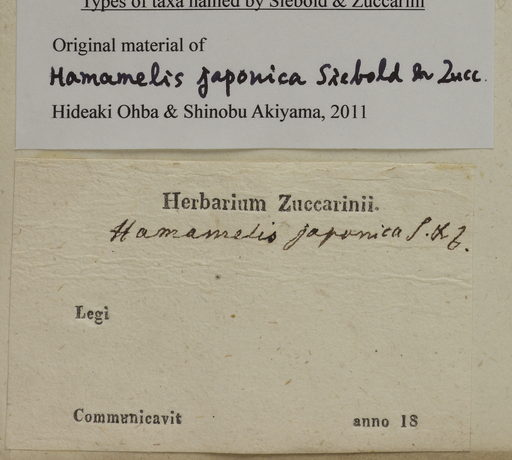 Types of taxa named by Siebold & Zuccarini
Original material of
Hamamelis japonica Siebold & Zucc.
Hideaki Ohba & Shinobu Akiyama, 2011
Herbarium Zuccarinii.
Hamamelis japonica S. & Z.
Legi
Communicavit
anno 18